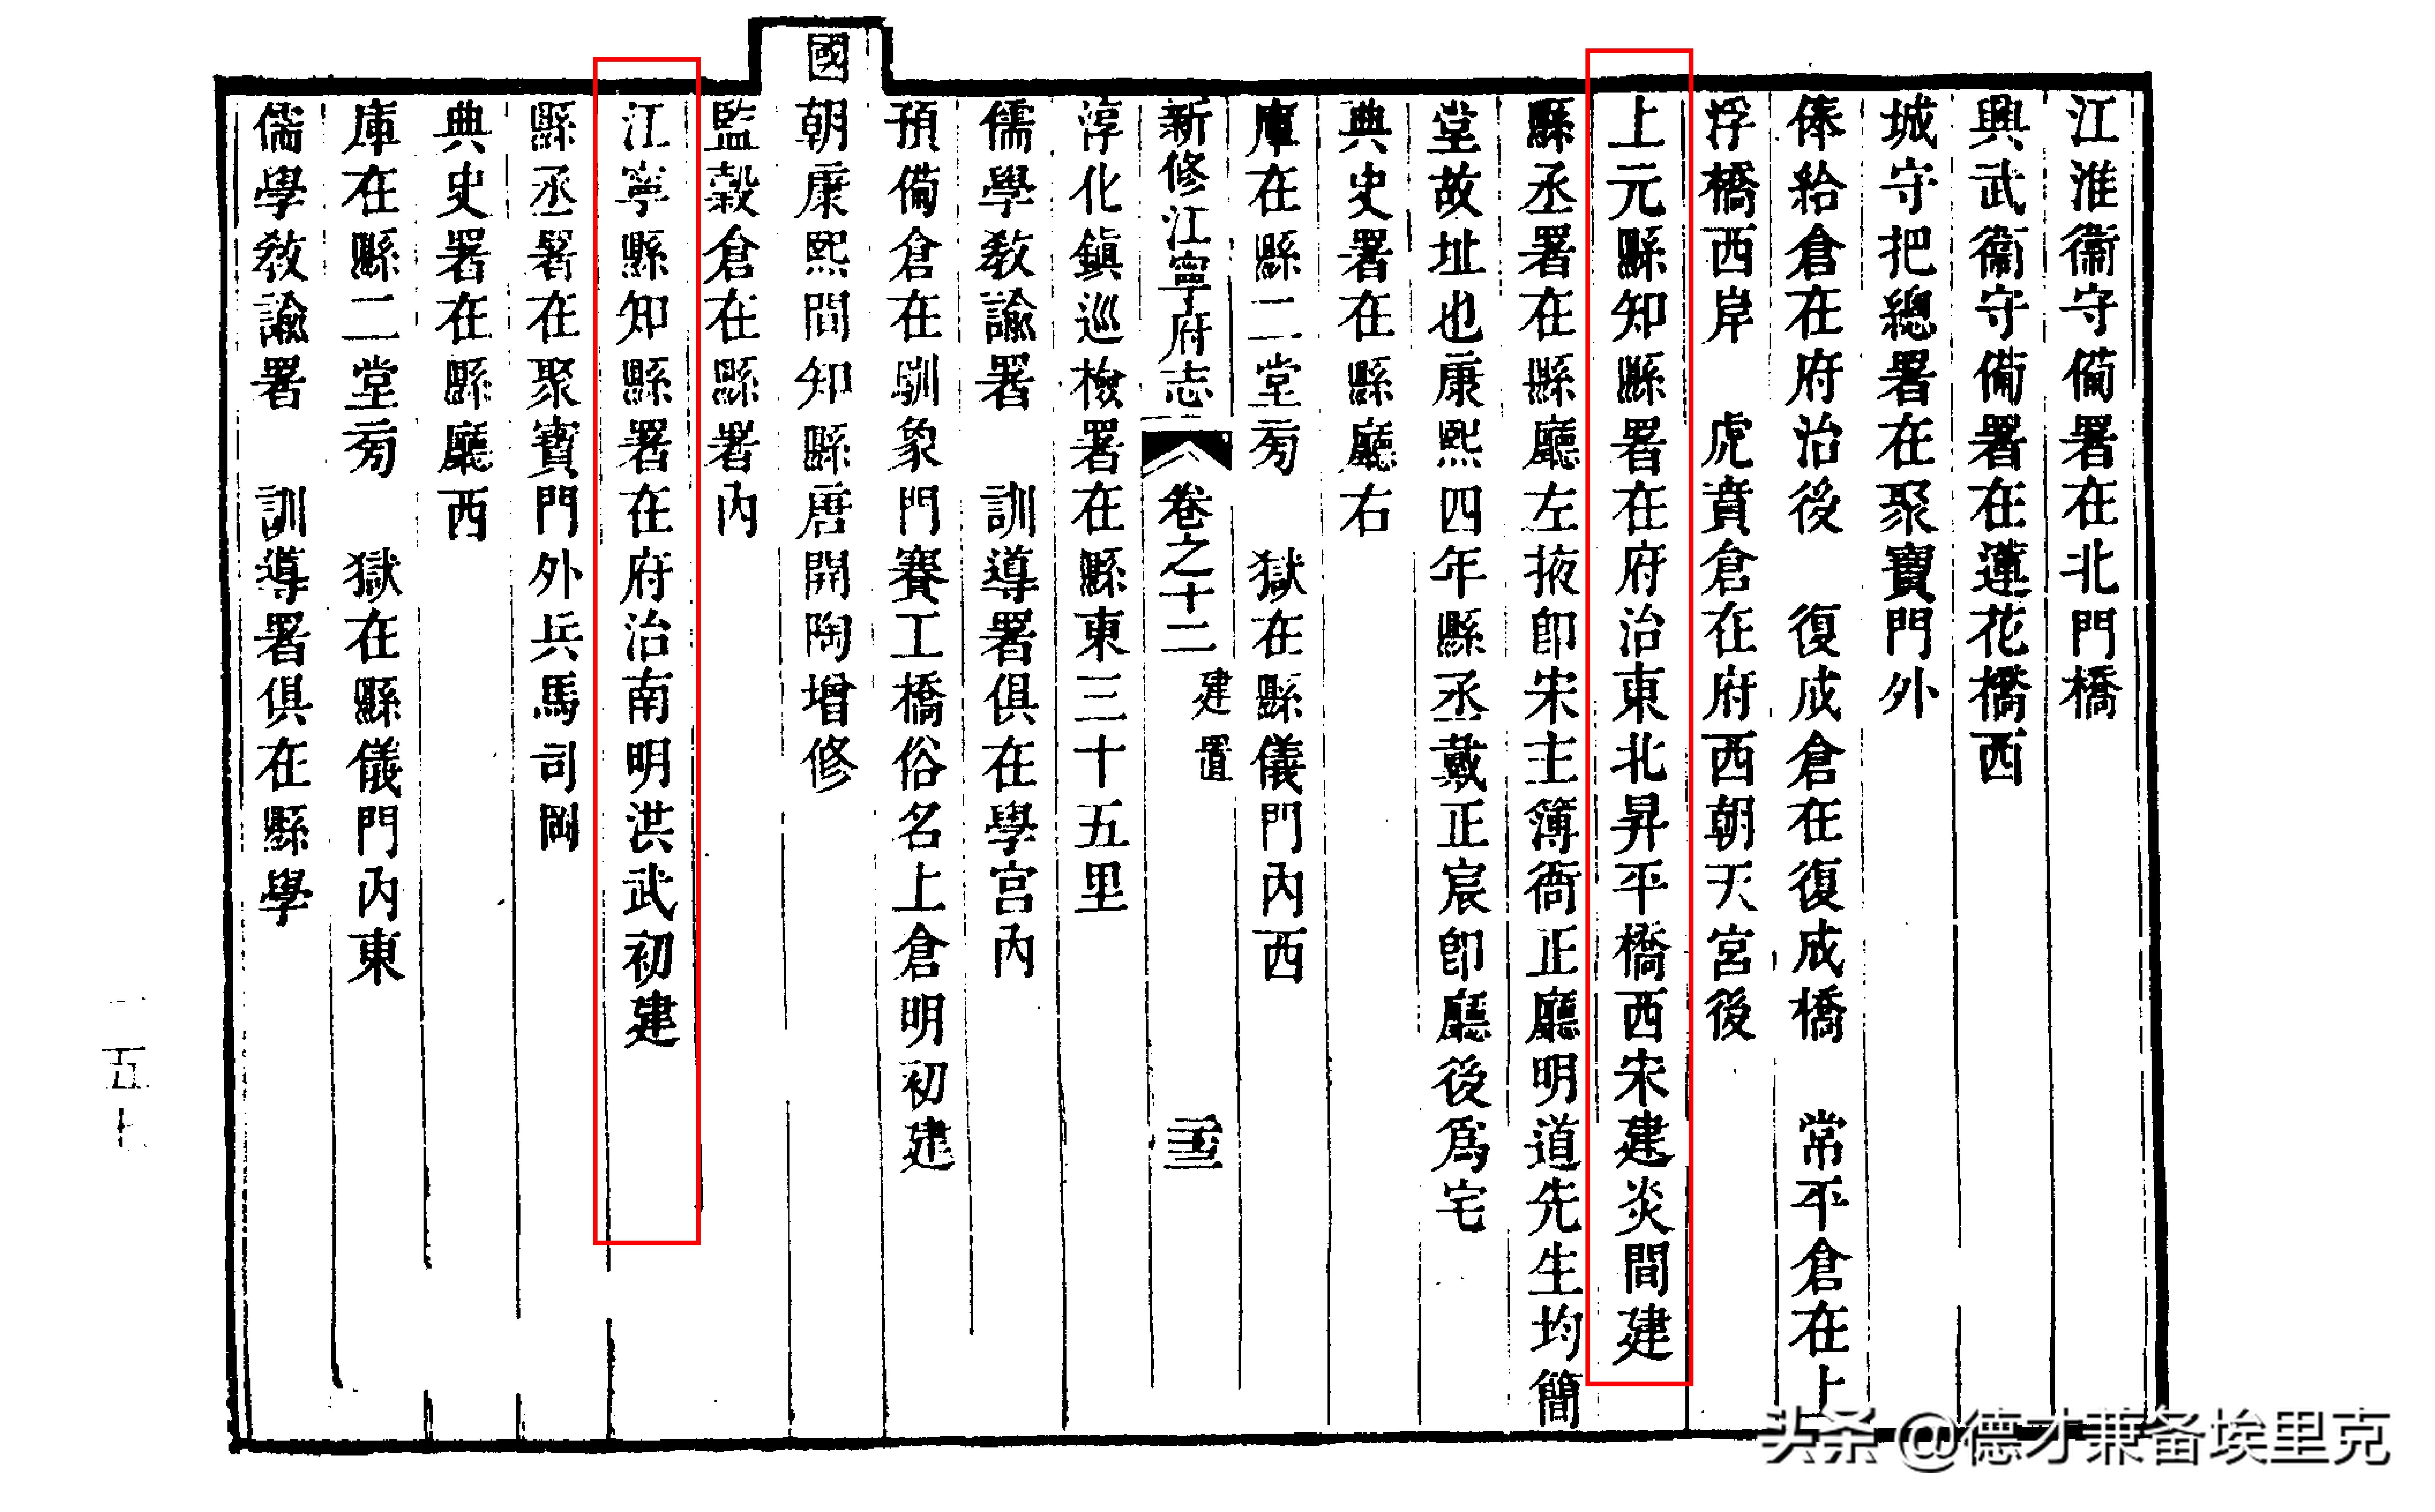 江淮衞守備署在北門橋
興武衞守備署在蓮花橋西
城守把總署在聚寶門外
俸給倉在府治後　復成倉在復成橋　常平倉在上
浮橋西岸　虎賁倉在府西朝天宮後
上元縣知縣署在府治東北昇平橋西宋建炎間建
縣丞署在縣廳左掖卽宋主簿衙正廳明道先生均簡
堂故址也康熙四年縣丞戴正宸卽廳後爲宅
典史署在縣廳右
庫在縣二堂旁　獄在縣儀門內西
新修江寧府志　卷之十二　建置
淳化鎮巡檢署在縣東三十五里
儒學敎諭署　訓導署俱在學宮內
預備倉在馴象門賽工橋俗名上倉明初建
國朝康熙間知縣唐開陶增修
監穀倉在縣署內
江寧縣知縣署在府治南明洪武初建
縣丞署在聚寶門外兵馬司岡
典史署在縣廳西
庫在縣二堂旁　獄在縣儀門內東
儒學敎諭署　訓導署俱在縣學
一五七
头条 @德才兼备埃里克